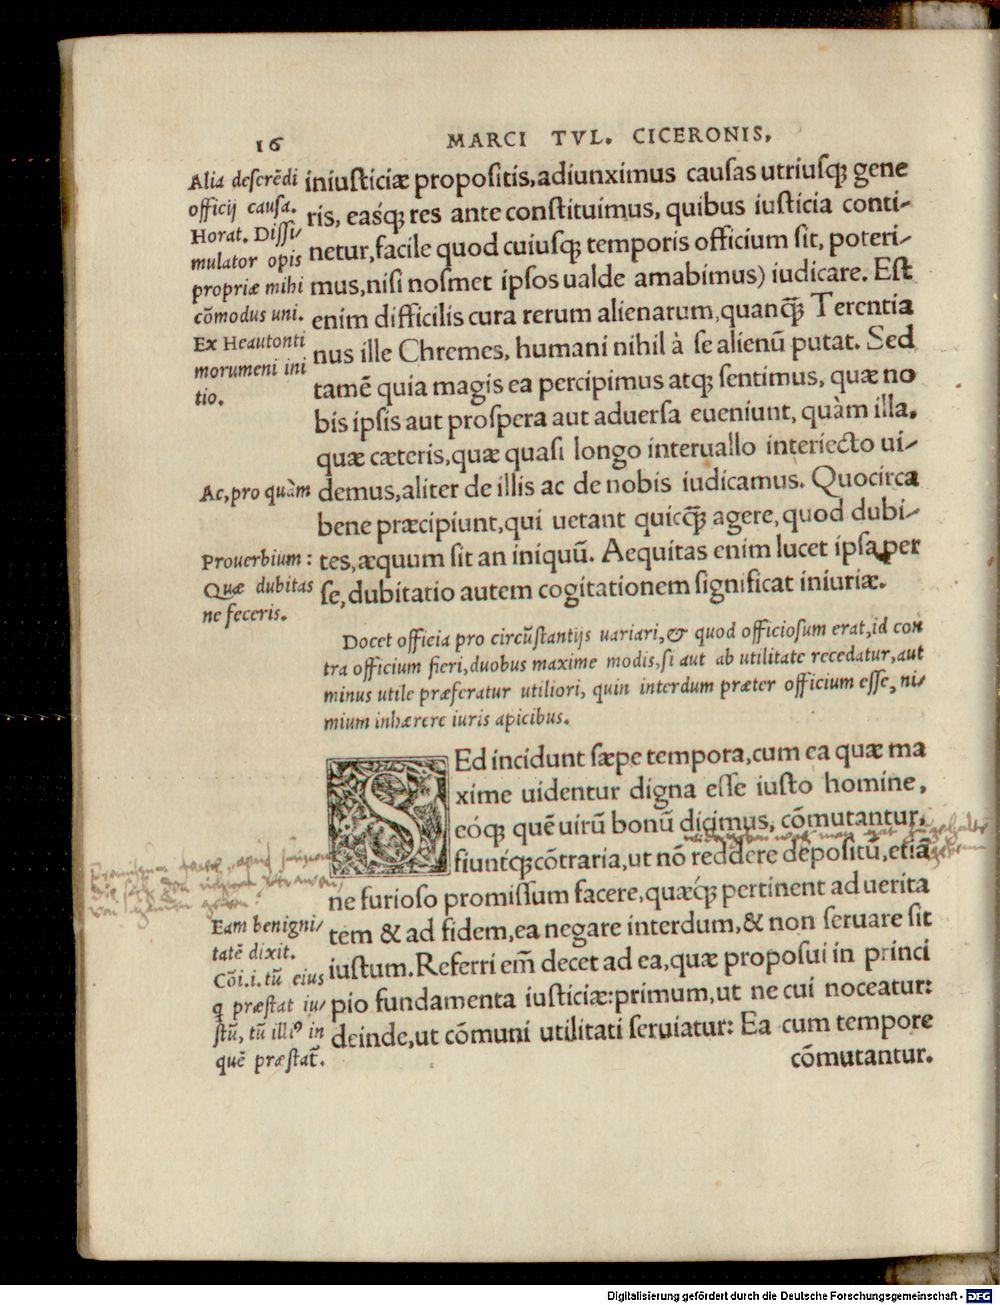 16
MARCI TVL. CICERONIS,
Alia deserēdi
officij causa.
Horat. Dissi/
mulator opis
propriæ mihi
cōmodus uni.
Ex Heautonti
morumeni ini
tio.
Ac, pro quàm
Prouerbium:
Quæ dubitas
ne feceris.
iniusticiæ propositis, adiunximus causas utriusq; gene
ris, easq́; res ante constituimus, quibus iusticia conti/
netur, facile quod cuiusq; temporis officium sit, poteri/
mus, nisi nosmet ipsos ualde amabimus) iudicare. Est
enim difficilis cura rerum alienarum, quanq̃; Terentia
nus ille Chremes, humani nihil à se alienū putat. Sed
tamē quia magis ea percipimus atq; sentimus, quæ no
bis ipsis aut prospera aut aduersa eueniunt, quàm illa,
quæ cæteris, quæ quasi longo interuallo interiecto ui/
demus, aliter de illis ac de nobis iudicamus. Quocirca
bene præcipiunt, qui uetant quicq̃; agere, quod dubi/
tes, æquum sit an iniquū. Aequitas enim lucet ipsa per
se, dubitatio autem cogitationem significat iniuriæ.
Docet officia pro circūstantijs uariari, & quod officiosum erat, id con
tra officium fieri, duobus maxime modis, si aut ab utilitate recedatur, aut
minus utile præferatur utiliori, quin interdum præter officium esse, ni/
mium inhærere iuris apicibus.
SEd incidunt sæpe tempora, cum ea quæ ma
xime uidentur digna esse iusto homine,
eóq; quē uirū bonū dicimus, cōmutantur,
fiuntq́; cōtraria, ut nō reddere depositū, etiā
ne furioso promissum facere, quæq́; pertinent ad uerita
tem & ad fidem, ea negare interdum, & non seruare sit
iustum. Referri em̄ decet ad ea, quæ proposui in princi
pio fundamenta iusticiæ: primum, ut ne cui noceatur:
deinde, ut cōmuni utilitati seruiatur: Ea cum tempore
cōmutantur.
Eam benigni/
tatē dixit.
Cōi.i. tū eius
q præstat iu/
stū, tū illiꝰ in
quē præstat̃.
Digitalisierung gefördert durch die Deutsche Forschungsgemeinschaft - DFG